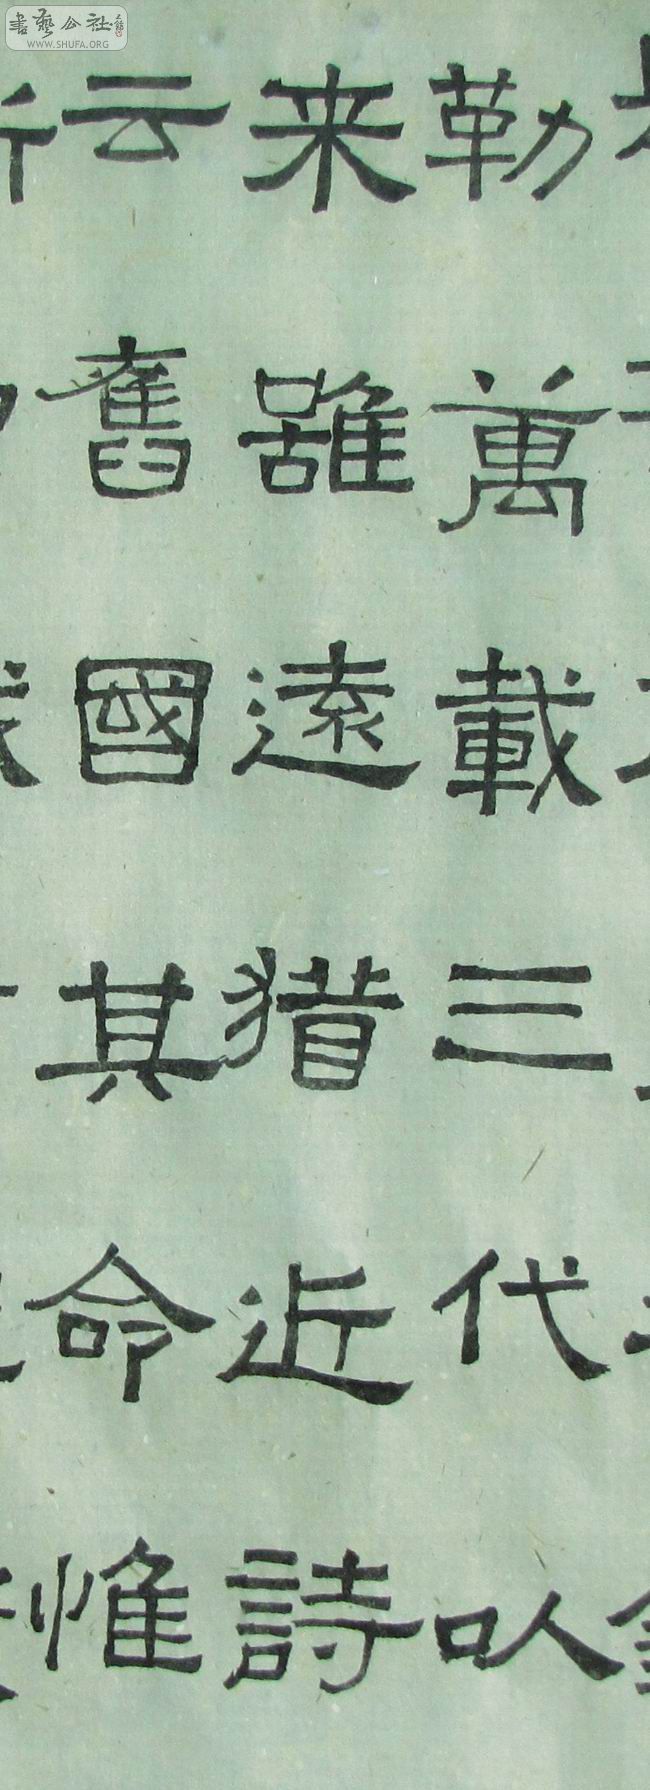 書藝公社
WWW.SHUFA.ORG
勒萬載三代以
来雖遠猎近詩
云舊國其命惟